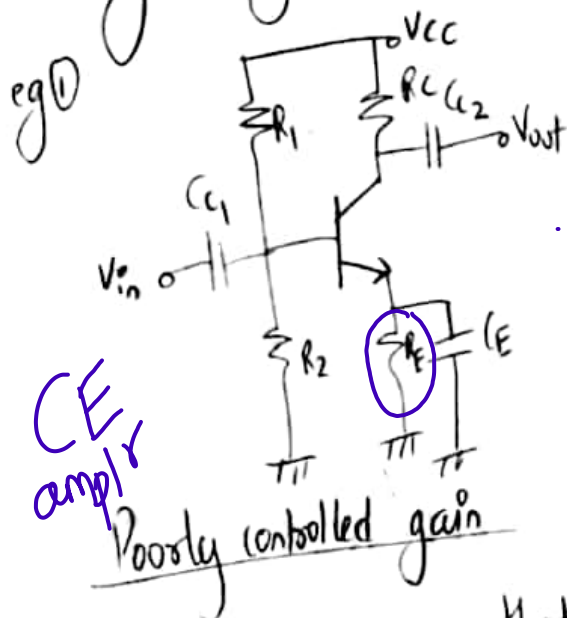 eg①
VCC
R1
RC
Cc2
Vout
Cc1
Vin
R2
RE
CE
CE
amplr
Poorly controlled gain